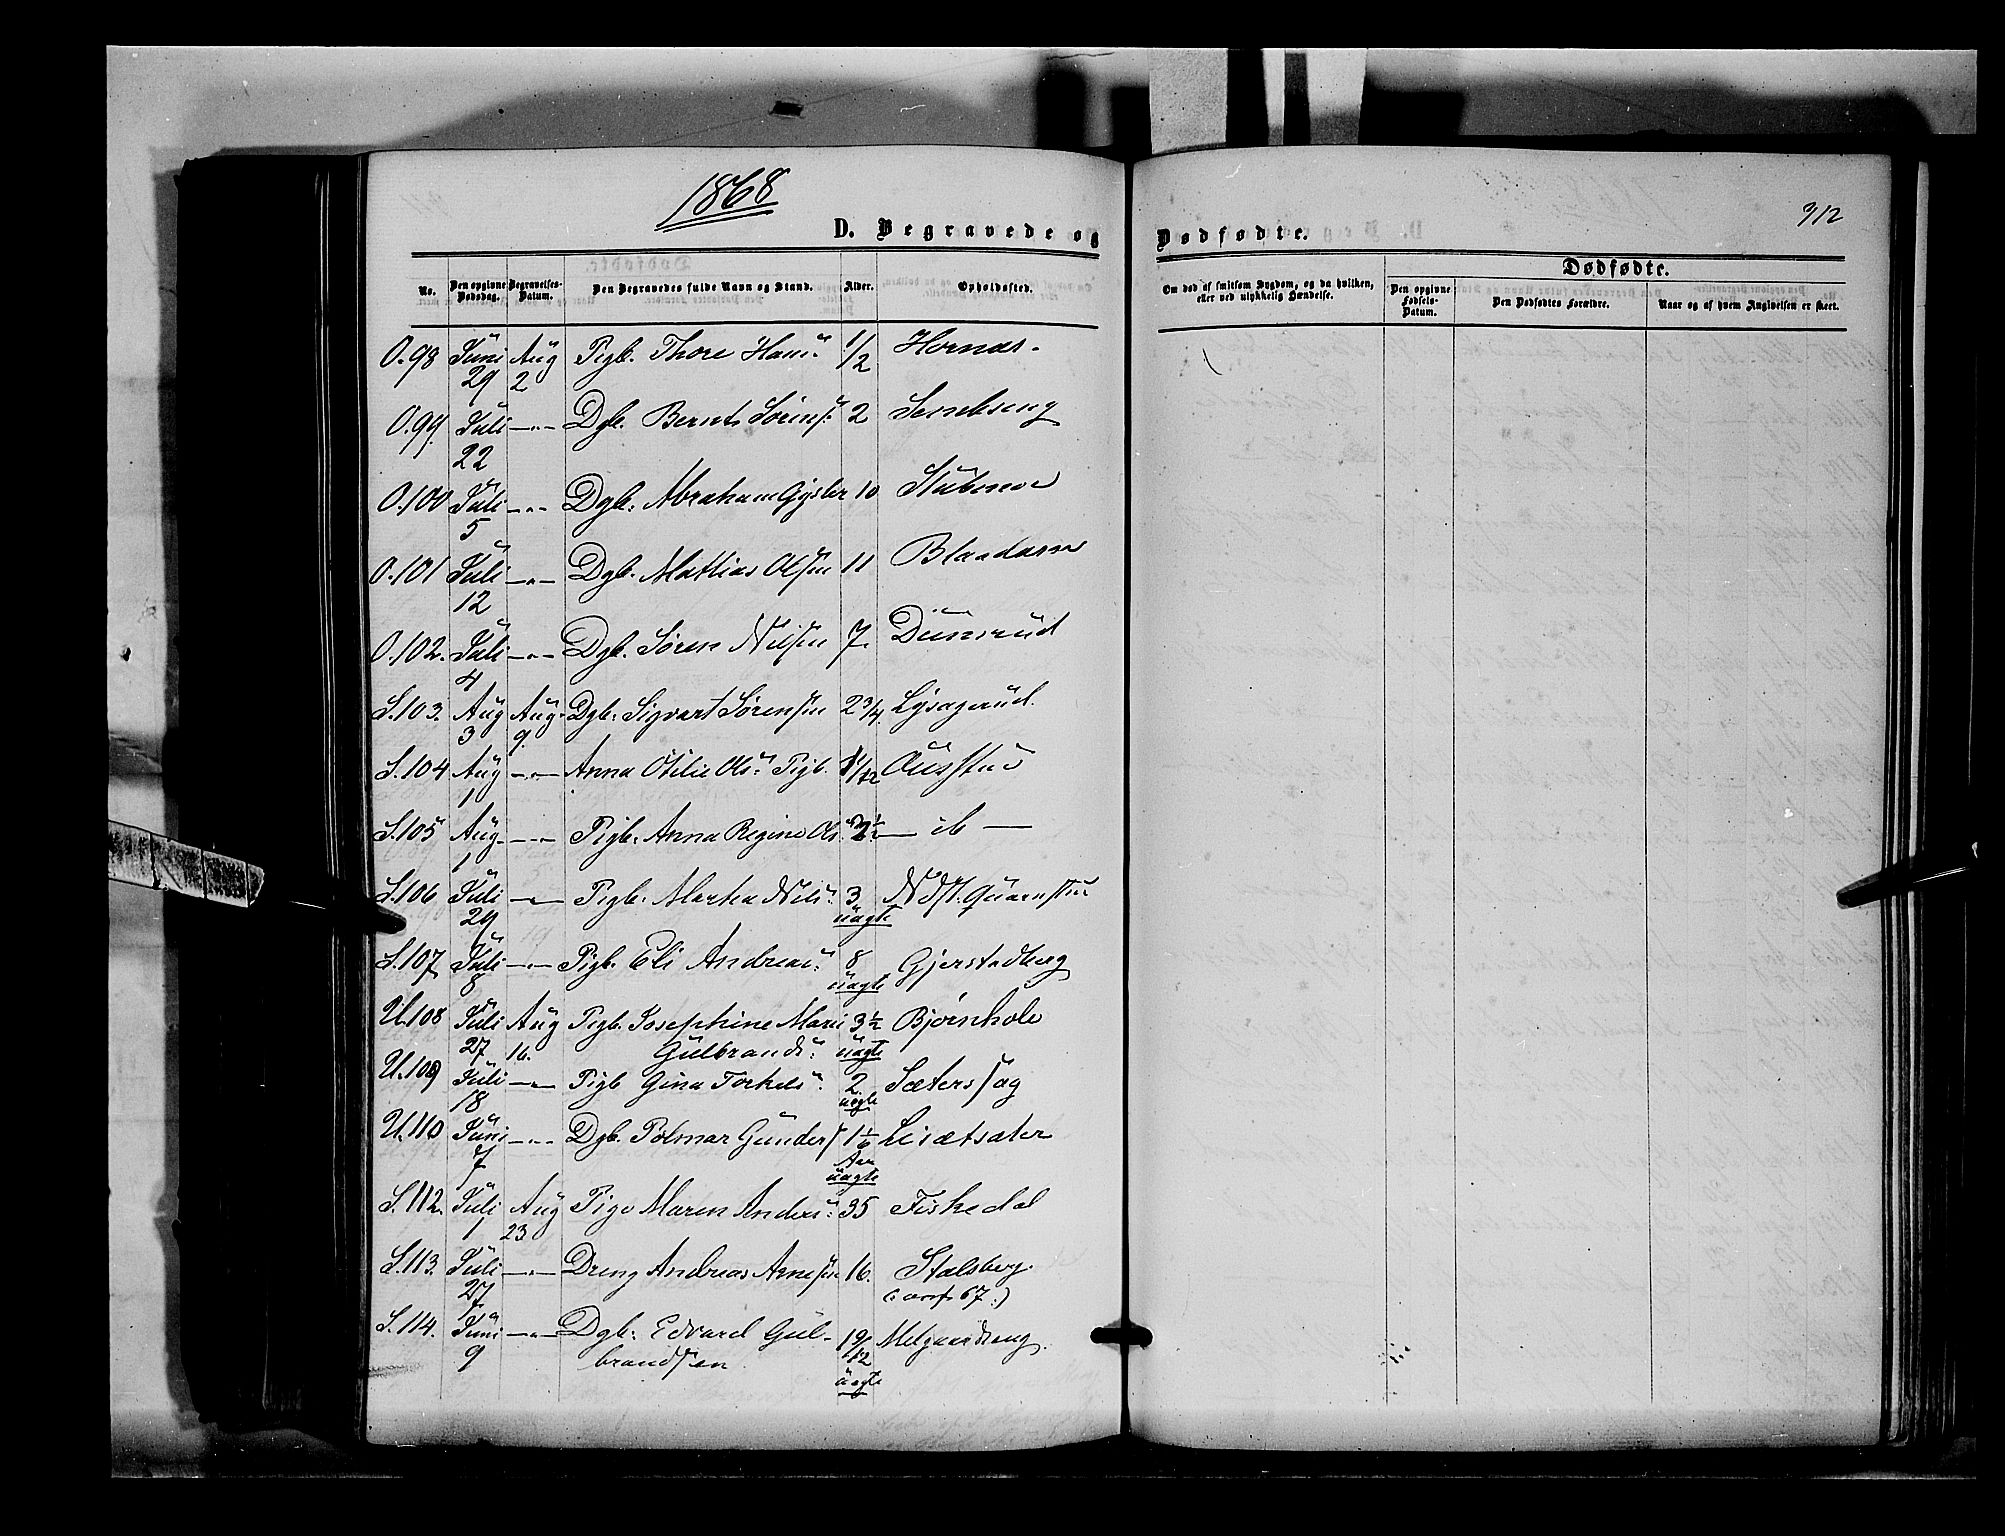 1868
312
D. Begravede og Dødfødte.
No. Den opgivne Dødsdag. Begravelses-Datum. Den Begravedes fulde Navn og Stand. Alder. Opholdssted. Om død af smitsom Sygdom, og da hvilken, eller ved ulykkelig Hændelse. Dødfødte. Den opgivne Fødsels-Datum. Den Dødfødtes Forældre. Naar og af hvem Angivelsen er skeet.
O.98 Juni 29 Aug 2 Pigb. Thore Hans. 1/2 Hornæs.
O.99 Juli 22 -"- Dgb. Bernt Sörens. 2
O.100 Juli 5 -"- Dgb. Abraham Gysler 10
O.101 Juli 12 -"- Dgb. Mathias Olsen 11
O.102. Juli 4 -"- Dgb. Sören Nilsen 7. Dünsrud
S.103. Aug 3 Aug. 9. Dgb. Sigvart Sørensen 2 3/4. Lysagerud.
S.104 Aug 1 -"- Anna Otilie Ols. Pigb.
S.105 Aug. 1 -"- Pigb. Anna Regine Ols. — ib —
S.106 Juli 29 -"- Pigb. Marthea Nils. 3 uægte
S.107 Juli 8 -"- Pigb. Eli Andreas. 8 uægte Gjerstadberg
U.108 Juli 27 Aug 16. Pigb. Josephine Marie 3 1/2 Bjørnhole
Gulbrands. uægte
U.109 Juli 18 -"- Pigb Gina Torkels. 2 uægte Sætersag
U.110 Juni 7 -"- Dgb. Polmar Gunders 1 1/6 Aar uægte
S.112. Juli 1 Aug 23 Pige Maren Anders. 35 Fiskedal
S.113. Juli 27 -"- Dreng Andreas Arnesen 16. Stalsberg.
S.114. Juni 9 -"- Dgb. Edvard Gul- 19/12 Melgaardseng.
brandsen uægte